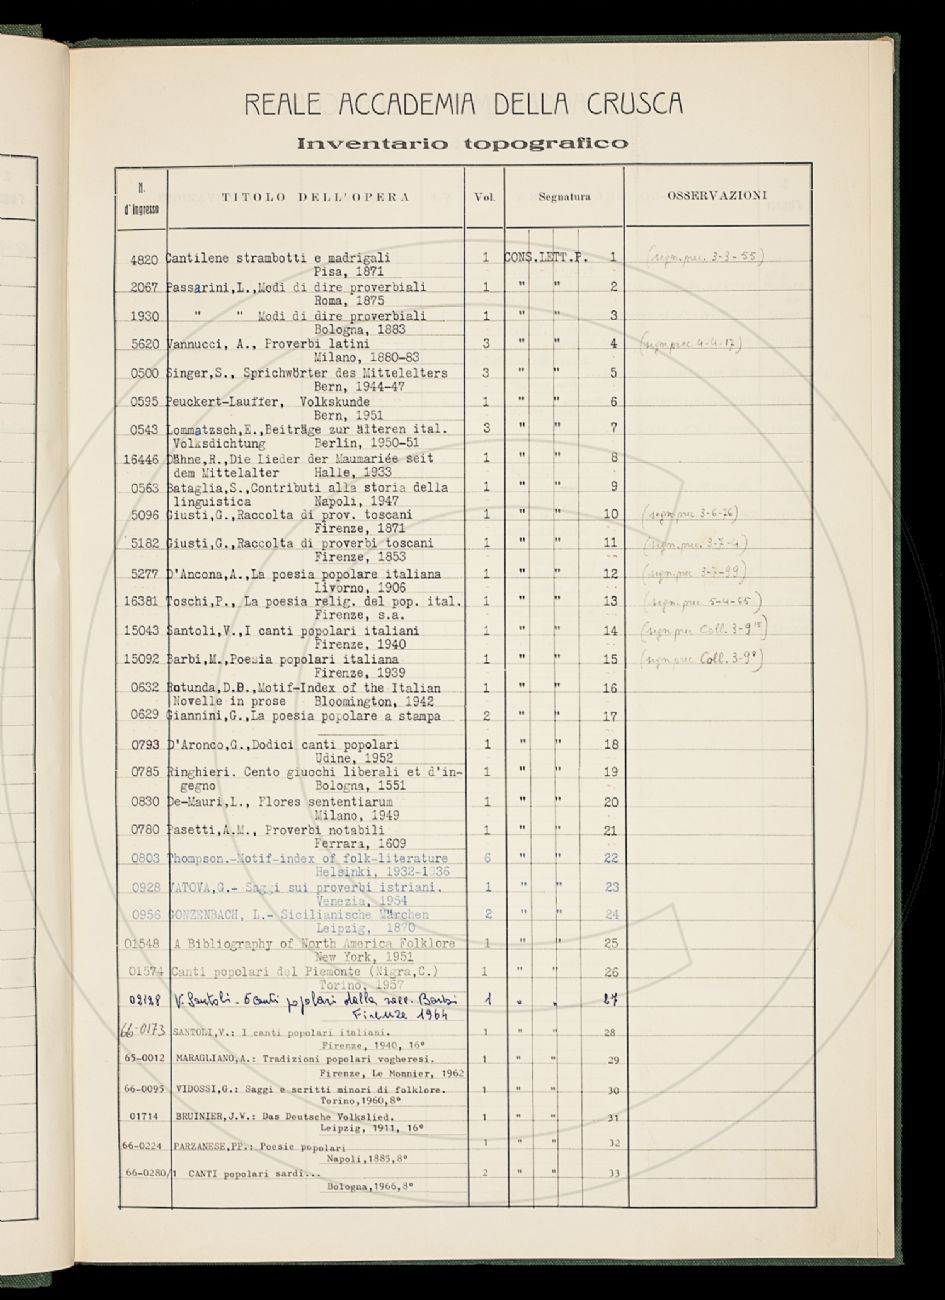 REALE ACCADEMIA DELLA CRUSCA
Inventario topografico
N. d'ingresso TITOLO DELL'OPERA Vol. Segnatura OSSERVAZIONI
4820 Cantilene strambotti e madrigali 1 CONS.LETT.P. 1 (segn. prec. 3-3-55)
Pisa, 1871
2067 Passarini,L.,Modi di dire proverbiali 1 " " 2
Roma, 1875
1930 " " Modi di dire proverbiali 1 " " 3
Bologna, 1883
5620 Vannucci, A., Proverbi latini 3 " " 4 (segn. prec. 4-4-17)
Milano, 1880-83
0500 Singer,S., Sprichwörter des Mittelelters 3 " " 5
Bern, 1944-47
0595 Peuckert-Lauffer, Volkskunde 1 " " 6
Bern, 1951
0543 Lommatzsch,E.,Beiträge zur älteren ital. 3 " " 7
Volksdichtung Berlin, 1950-51
16446 Dähne,R.,Die Lieder der Maumariée seit 1 " " 8
dem Mittelalter Halle, 1933
0563 Bataglia,S.,Contributi alla storia della 1 " " 9
linguistica Napoli, 1947
5096 Giusti,G.,Raccolta di prov. toscani 1 " " 10 (segn. prec. 3-6-76)
Firenze, 1871
5182 Giusti,G.,Raccolta di proverbi toscani 1 " " 11 (segn. prec. 3-7-4)
Firenze, 1853
5277 D'Ancona,A.,La poesia popolare italiana 1 " " 12 (segn. prec. 3-7-99)
Livorno, 1906
16381 Toschi,P., La poesia relig. del pop. ital. 1 " " 13 (segn. prec. 5-4-55)
Firenze, s.a.
15043 Santoli,V.,I canti popolari italiani 1 " " 14 (segn prec Coll. 3-9
Firenze, 1940
15092 Barbi,M.,Poesia popolari italiana 1 " " 15 (segn prec Coll. 3-9⁸)
Firenze, 1939
0632 Rotunda,D.B.,Motif-Index of the Italian 1 " " 16
Novelle in prose Bloomington, 1942
0629 Giannini,G.,La poesia popolare a stampa 2 " " 17
0793 D'Aronco,G.,Dodici canti popolari 1 " " 18
Udine, 1952
0785 Ringhieri. Cento giuochi liberali et d'in- 1 " " 19
gegno Bologna, 1551
0830 De-Mauri,L., Flores sententiarum 1 " " 20
Milano, 1949
0780 Pasetti,A.M., Proverbi notabili 1 " " 21
Ferrara, 1609
0803 Thompson.-Motif-index of folk-literature 6 " " 22
Helsinki, 1932-1936
0928 VATOVA,G.- Saggi sui proverbi istriani. 1 " " 23
Venezia, 1954
0956 GONZENBACH, L.- Sicilianische Märchen 2 " " 24
Leipzig, 1870
01548 A Bibliography of North America Folklore 1 " " 25
New York, 1951
01574 Canti popolari del Piemonte (Nigra,C.) 1 " " 26
Torino, 1957
V. Santoli - 5 canti popolari della racc. Barbi 1 " " 27
Firenze 1964
66-0173 SANTOLI,V.: I canti popolari italiani. 1 " " 28
Firenze, 1940, 16°
65-0012 MARAGLIANO,A.: Tradizioni popolari vogheresi. 1 " " 29
Firenze, Le Monnier, 1962
66-0095 VIDOSSI,G.: Saggi e scritti minori di folklore. 1 " " 30
Torino,1960,8°
01714 BRUINIER,J.W.: Das Deutsche Volkslied. 1 " " 31
Leipzig, 1911, 16°
66-0224 PARZANESE,PP.: Poesie popolari 1 " " 32
Napoli,1885,8°
66-0280/1 CANTI popolari sardi... 2 " " 33
Bologna,1966,8°